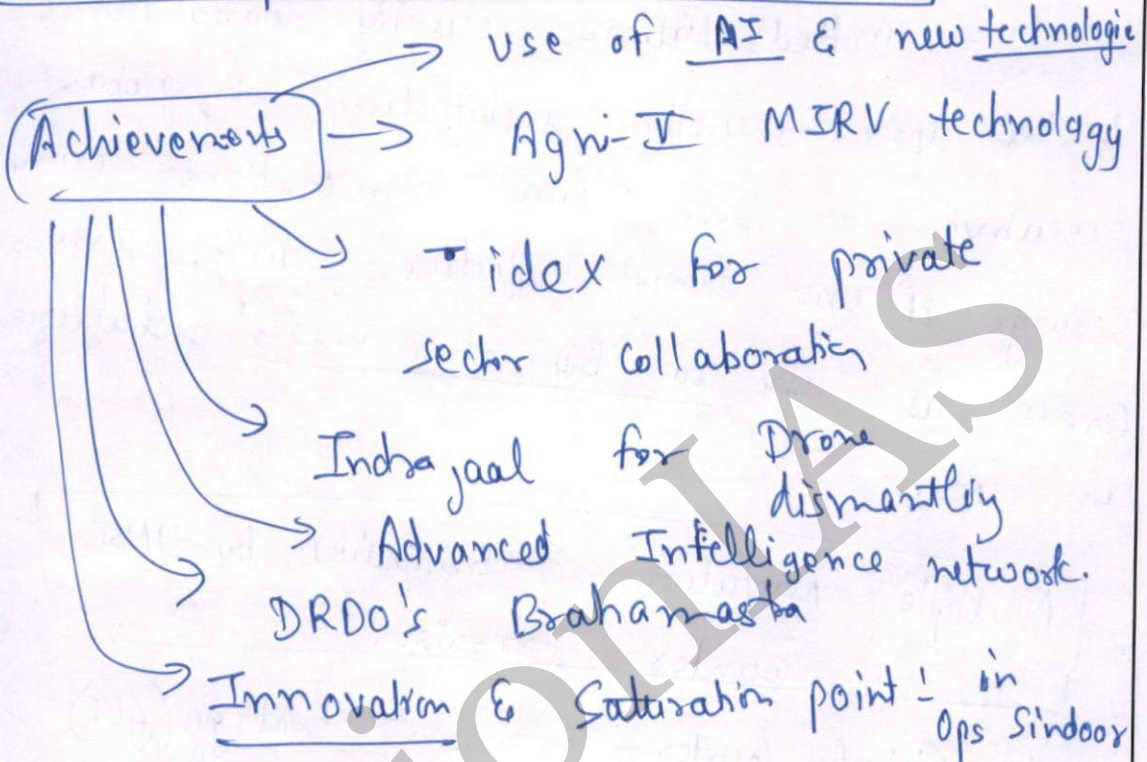 use of AI & new technologie
Achievements
Agni-V MIRV technology
idex for private
sector collaboration
Indrajaal for Drone
dismantling
Advanced Intelligence network.
DRDO's Brahamastra
Innovation & Saturation point: in
Ops Sindoor
ionIAS